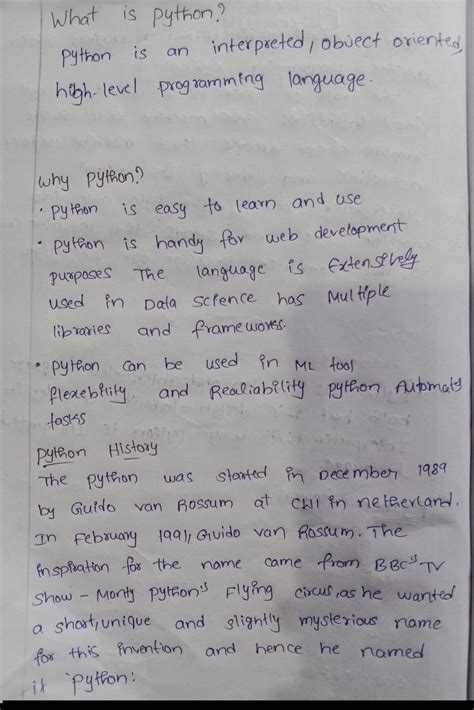 What is python?
python is an interpreted, object oriented,
high-level programming language.
why python?
• python is easy to learn and use
• python is handy for web development
purposes The language is Extensively
used in Data science has Multiple
libraries and frameworks.
• python can be used in ML tool
flexebility and Realiability python Automaty
tasks
python History
The python was started in December 1989
by Guido van Rossum at CWI in netherland.
In February 1991, Guido van Rossum. The
inspiration for the name came from BBC's TV
Show - Monty python's Flying circus, as he wanted
a short, unique and slightly mysterious name
for this invention and hence he named
it python: